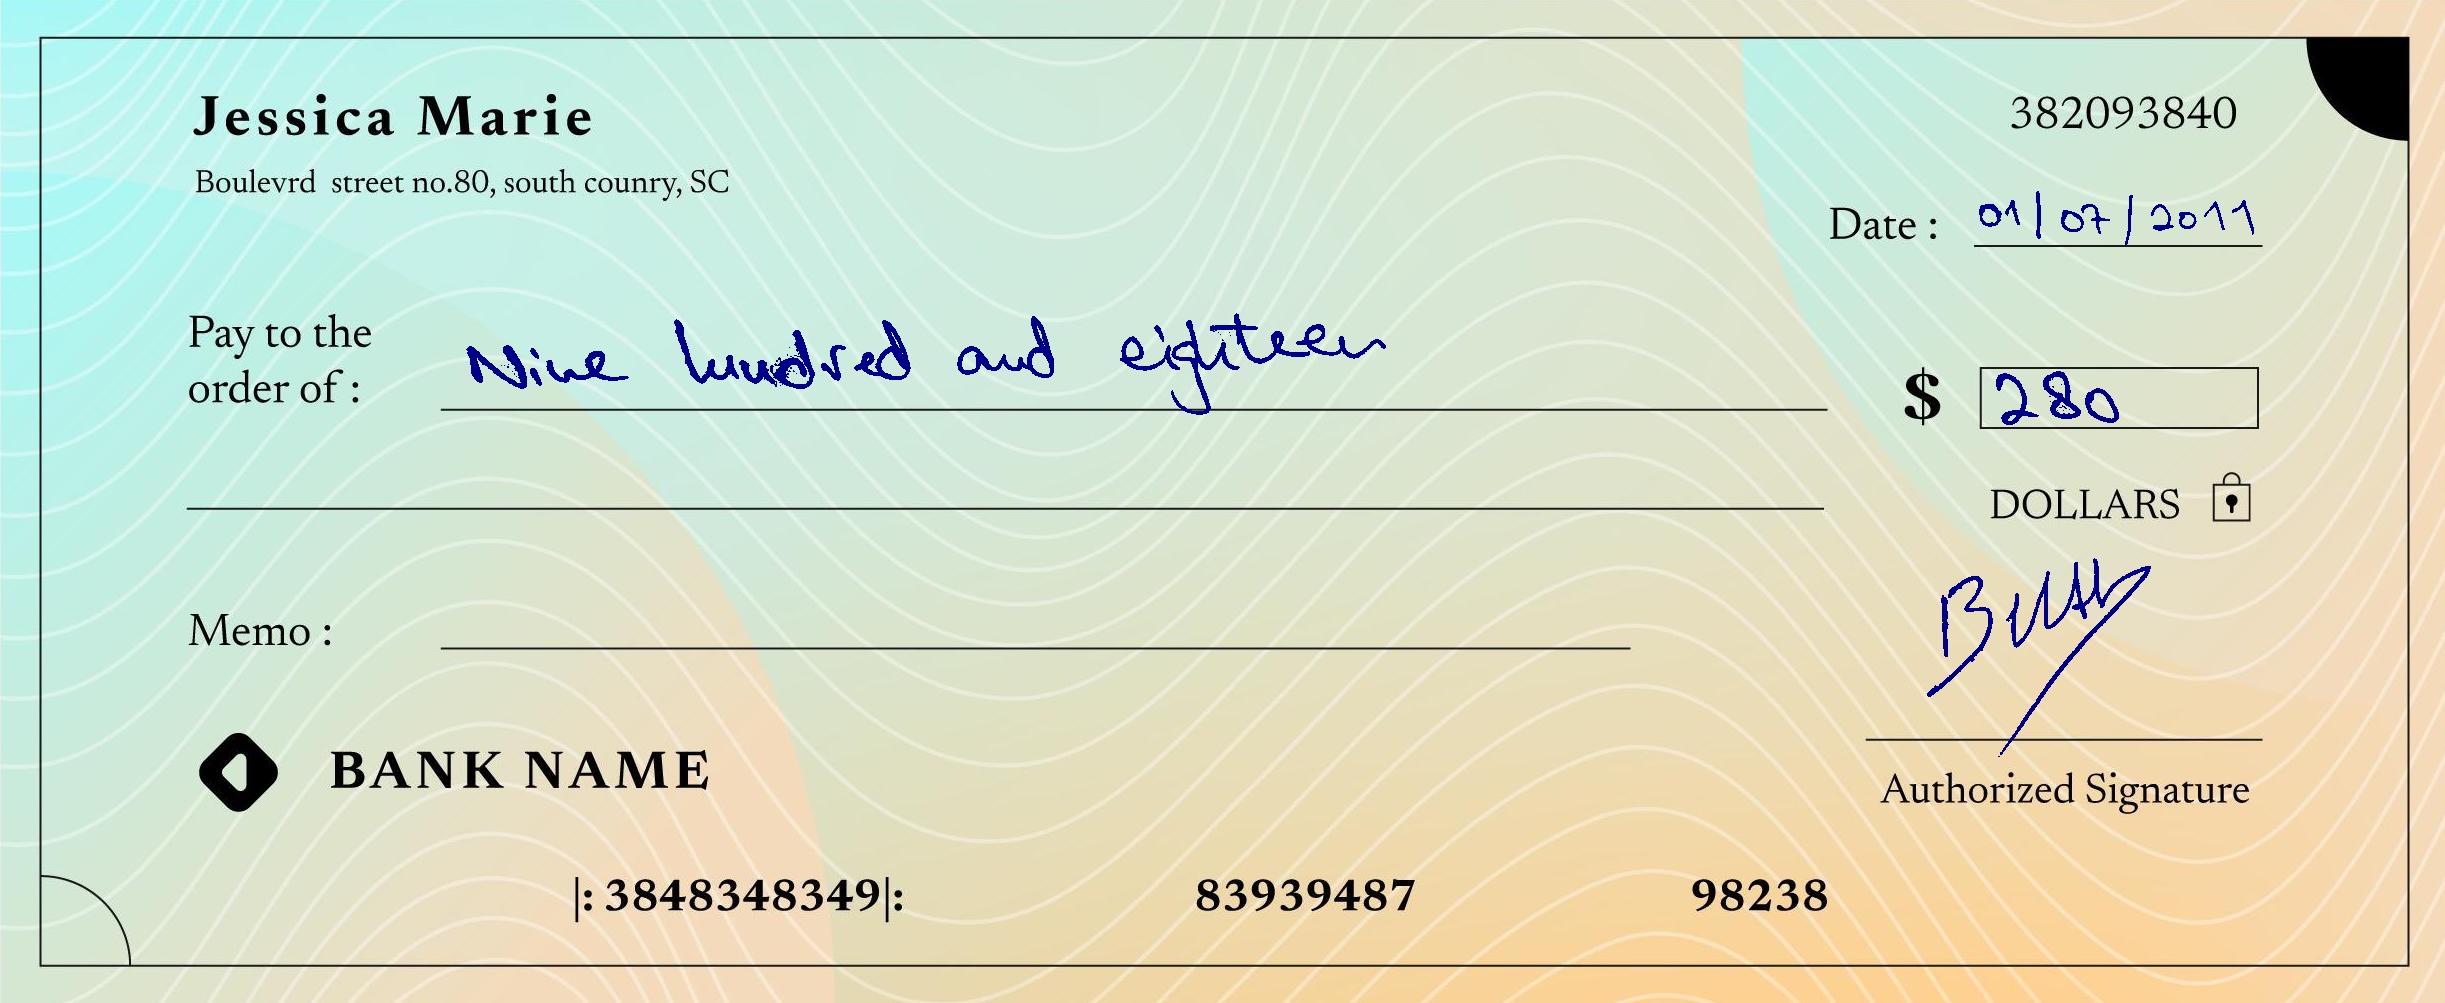 Jessica Marie
382093840
Boulevrd street no.80, south counry, SC
Date : 01/07/2011
Pay to the
order of : Nine hundred and eighteen
$ 280
DOLLARS
Memo :
BANK NAME
Authorized Signature
|: 3848348349|: 83939487 98238